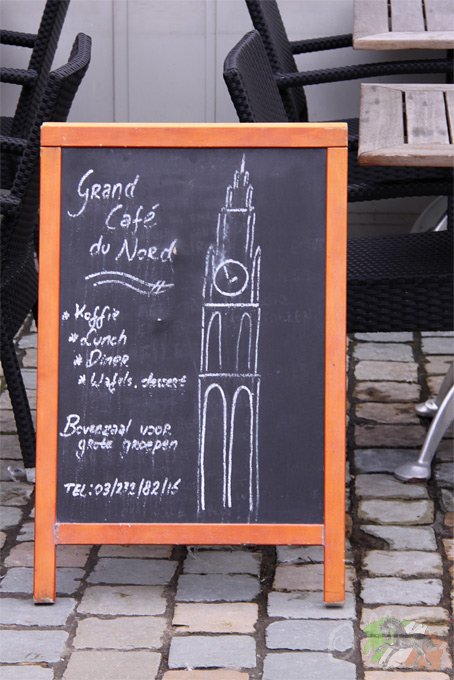 Grand
Café
du Nord
* Koffie
* Lunch
* Diner
* Wafels, dessert
Bovenzaal voor
grote groepen
TEL: 03/232/82/15